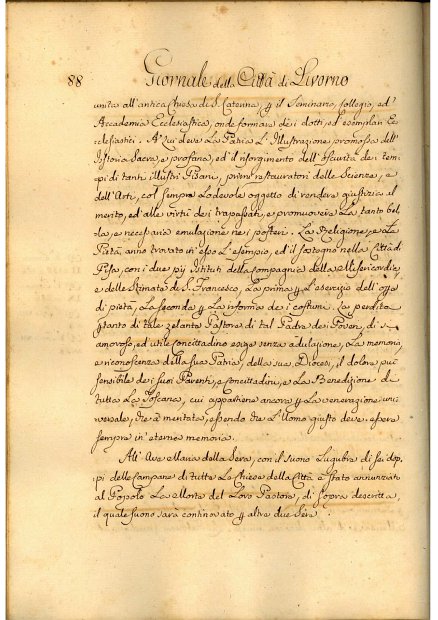 88 Giornale della Città di Livorno
unita all'antica Chiesa di S. Caterina, p il Seminario, Collegio, ed
Accademia Ecclesiastica, onde formare dei dotti, ed esemplari Ec-
clesiastici. A Lui deve La Patria L'Illustrazione promossa dell'
Istoria Sacra, e profana, ed il risorgimento dell'oscurità dei tem-
pi di tanti illustri Pisani, primi restauratori delle Scienze, e
dell'Arti, col sempre Lodevole oggetto di rendere giustizia al
merito, ed alle virtù dei trapassati, e promuovere La tanto bel-
la, e necessaria emulazione nei posteri. La Religione, e La
Pietà, anno trovato in esso L'esempio, ed il sostegno nella Città di
Pisa, con i due pij Istituti della Compagnia della Misericordia,
e delle Stimate di S. Francesco, La prima p L'esercizio dell'opere
di pietà, La seconda p La riforma dei costumi. La perdita
p tanto di tale zelante Pastore di tal Padre dei Poveri, di sì
amoroso, ed utile concittadino esige senza adulazione, La memoria,
e riconoscenza della sua Patria, della sua Diocesi, il dolore più
sensibile dei suoi Parenti, e concittadini, e La Benedizione di
tutta La Toscana, cui appartiene ancora p La venerazione uni-
versale, che à meritata, essendo che L'Uomo giusto deve essere
sempre in eterna memoria.
All'Ave Maria della Sera, con il suono Lugubre di sei dop-
pi delle Campane di tutte Le Chiese della Città è stato annunziato
al Popolo La Morte del Loro Pastore, di sopra descritta,
il quale suono sarà continovato p altre due Sere.